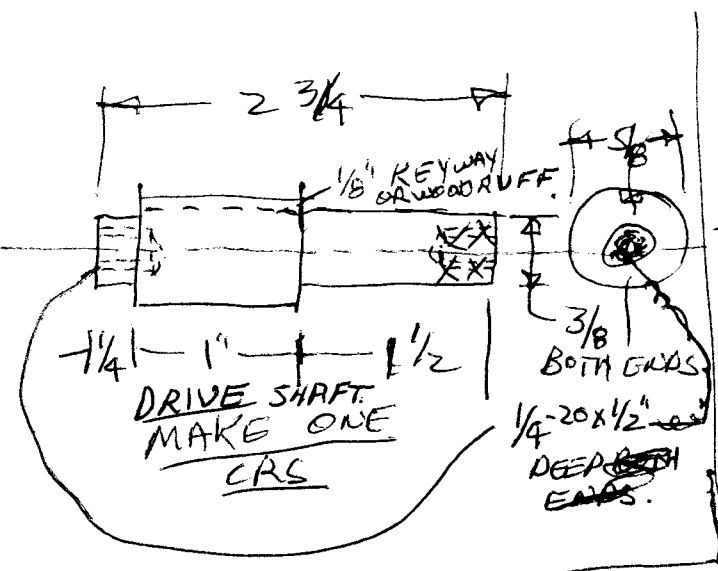 2 3/4
5/8
1/8" KEYWAY
OR WOODRUFF.
3/8
BOTH ENDS
1/4 1" 1 1/2
DRIVE SHAFT.
MAKE ONE
CRS
1/4-20 x 1/2"
DEEP BOTH
ENDS.